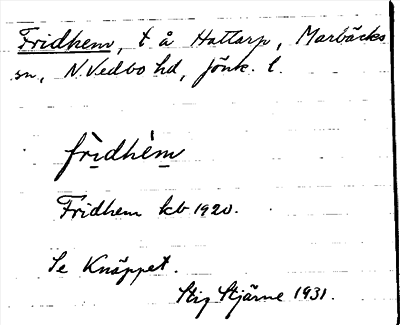 Fridhem, t å Hattarp, Marbäcks
sn, N. Vedbo hd, Jönk. l.
frìdhèm
Fridhem kb 1920.
Se Knäppet.
Stig Stjärne 1931.